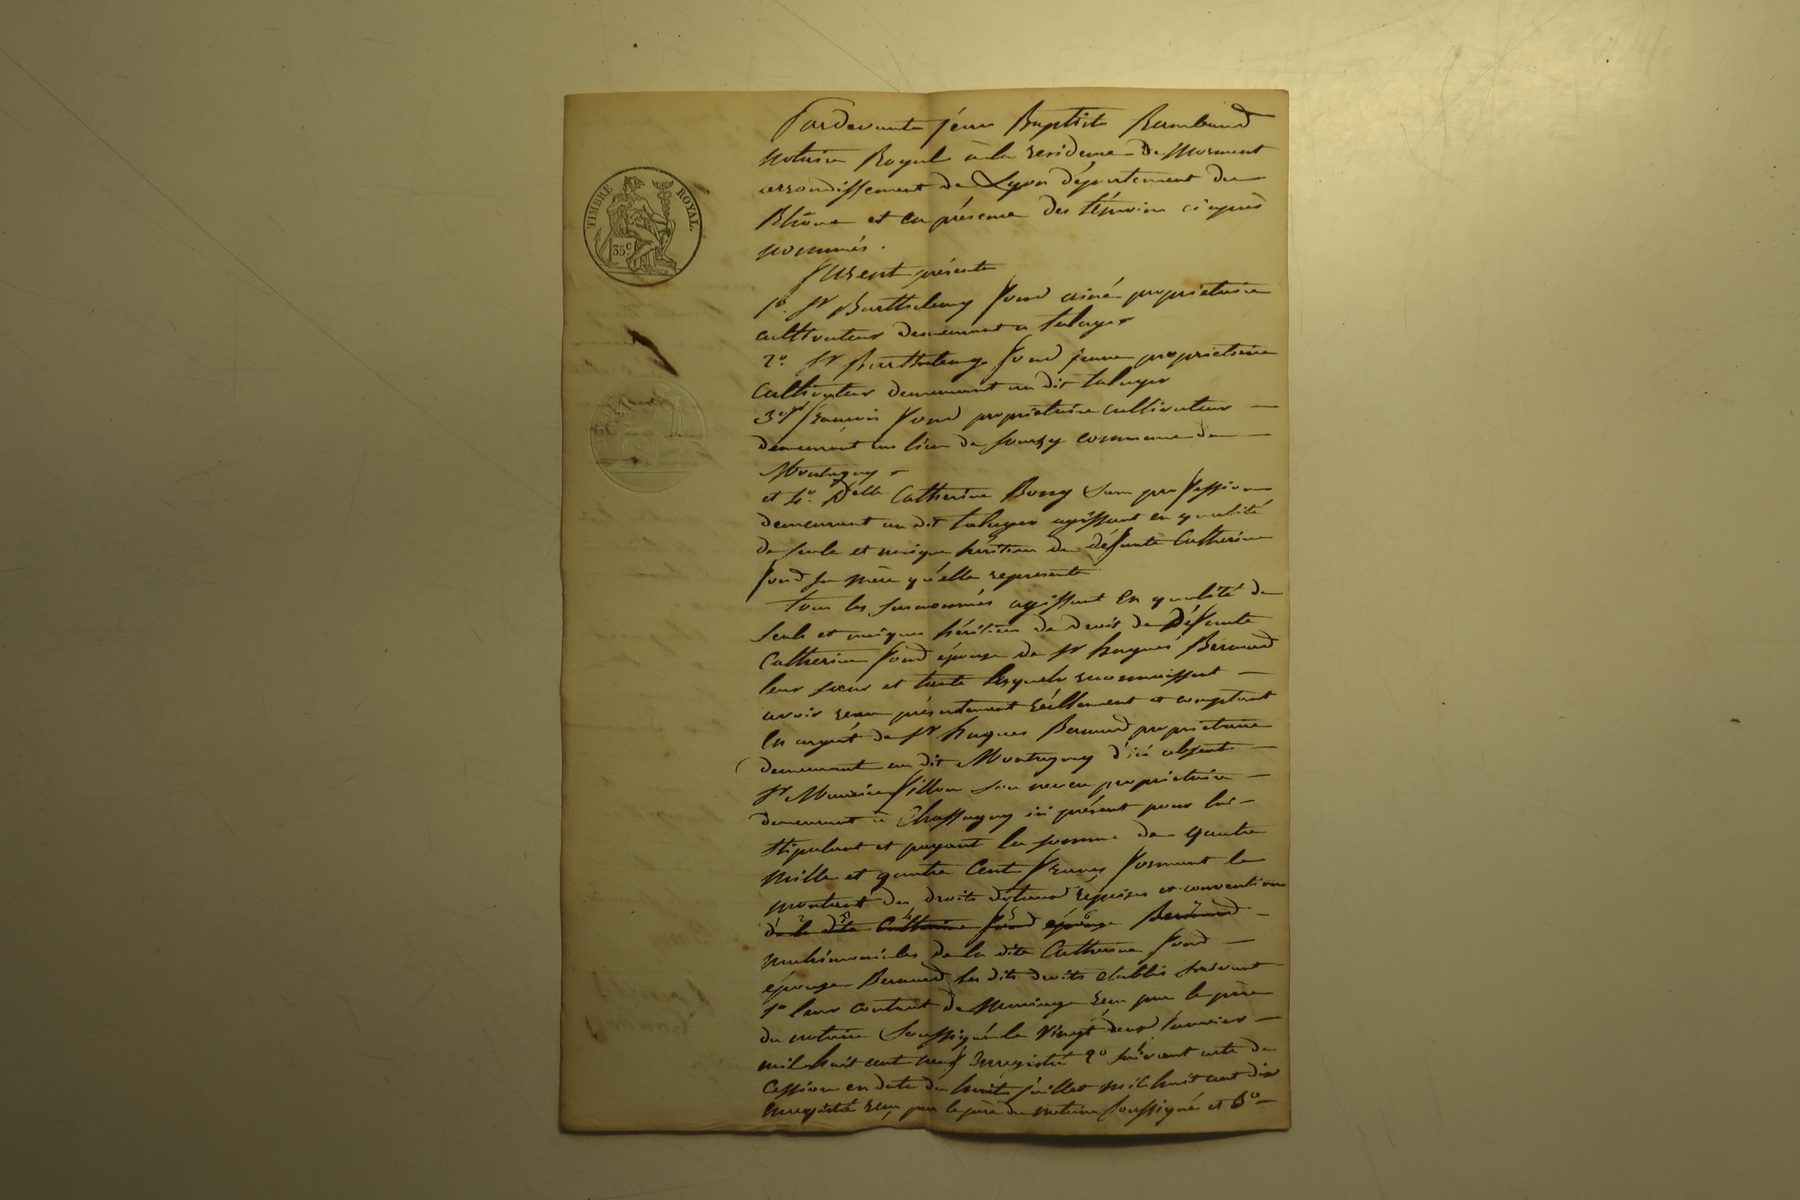 TIMBRE ROYAL.
35c
Pardevant Jean Baptiste Rambaud
Notaire Royal à la residence de Mornant
arrondissement de Lyon département du
Rhône et en présence des témoins ci après
nommés.
Furent présents
1o. Sr Barthelemy Fond ainé propriétaire
cultivateur demeurant a taluyer
2o. Sr Barthelemy Fond jeune propriétaire
Cultivateur demeurant au dit taluyer
3o Sr François Fond propriétaire cultivateur
demeurant au lieu de Sourzy commune de
Montagny
et 4o. Delle Catherine Bony Sans profession
demeurant au dit taluyer agissant en qualité
de seule et unique héritière de défunte Catherine
Fond sa mère qu'elle represente
tous les surnommés agissant en qualité de
Seuls et uniques héritiers de droit de Défunte
Catherine Fond épouse de Sr hugues Bernard
leur soeur et tante lesquels reconnaissent
avoir reçu présentement réellement et comptant
en argent de Sr hugues Bernard propriétaire
demeurant au dit Montagny d'ici absent
Sr Maurice Fillon son neveu propriétaire
demeurant à Chassagny ici présent pour lui
stipulant et payant la somme de quatre
Mille et quatre Cent Francs formant le
montant des droits dotaux reprises et convention
de la dite Catherine Fond épouse Bernard
matrimoniales de la dite Catherine Fond
épouse Bernard les dits droits établis suivant
1o leur contrat de Mariage reçu par le père
du notaire Soussigné le vingt deux Janvier
mil huit cent neuf Enregistré 2o suivant acte de
Cession en date du huit Juillet mil huit cent dix
Enregistré reçu par le père du notaire Soussigné et 3o